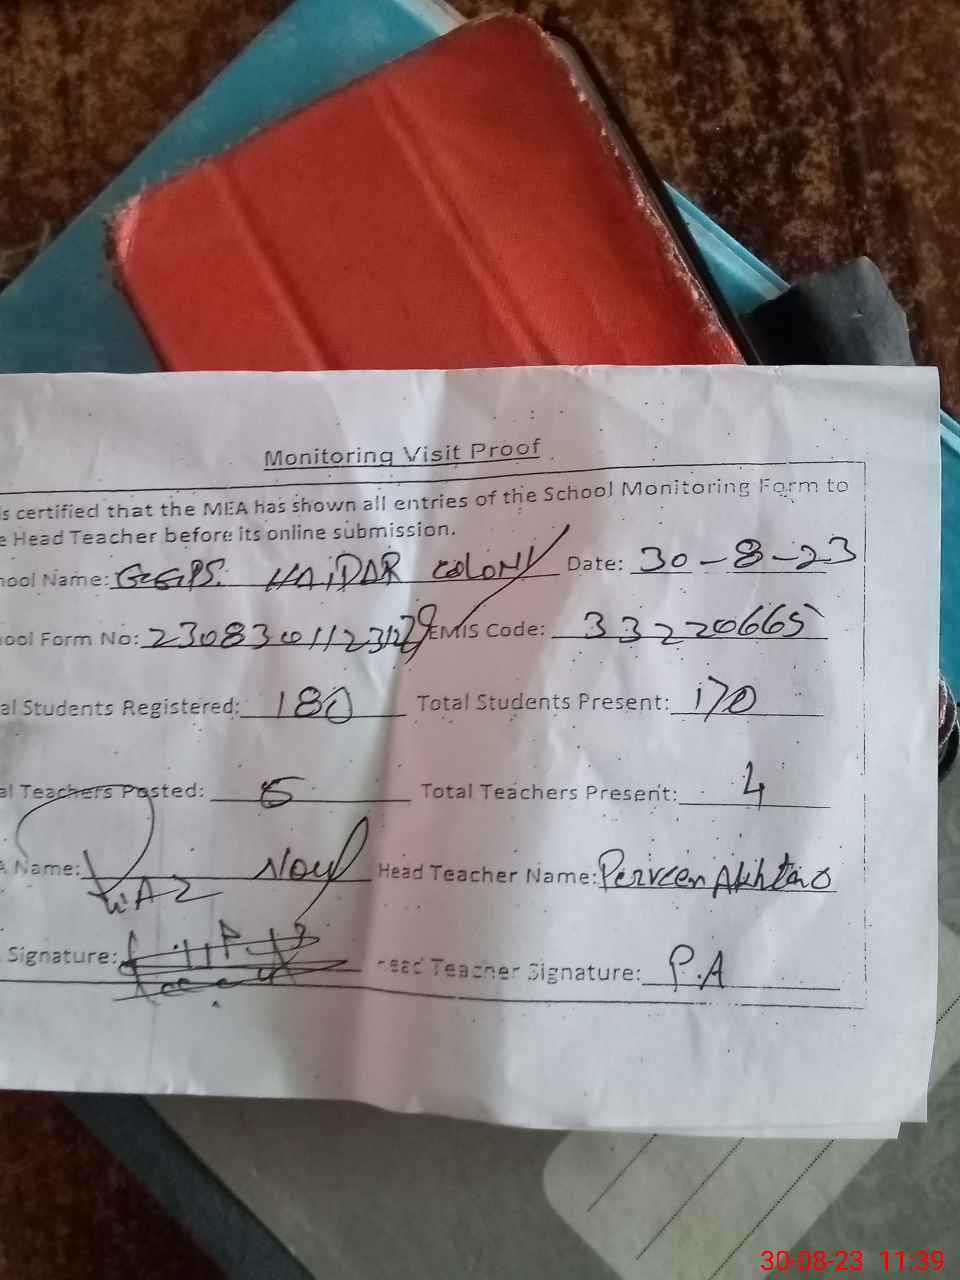 Monitoring Visit Proof
s certified that the MEA has shown all entries of the School Monitoring Form to
e Head Teacher before its online submission.
hool Name: GGPS. HAiDAR COLONY Date: 30-8-23
ool Form No: EMIS Code: 33220665
al Students Registered: 180 Total Students Present: 170
al Teachers Posted: 5 Total Teachers Present: 4
Name: Head Teacher Name: Perveen Akhtar
Signature: Head Teacher Signature: P.A
30-08-23 11:39